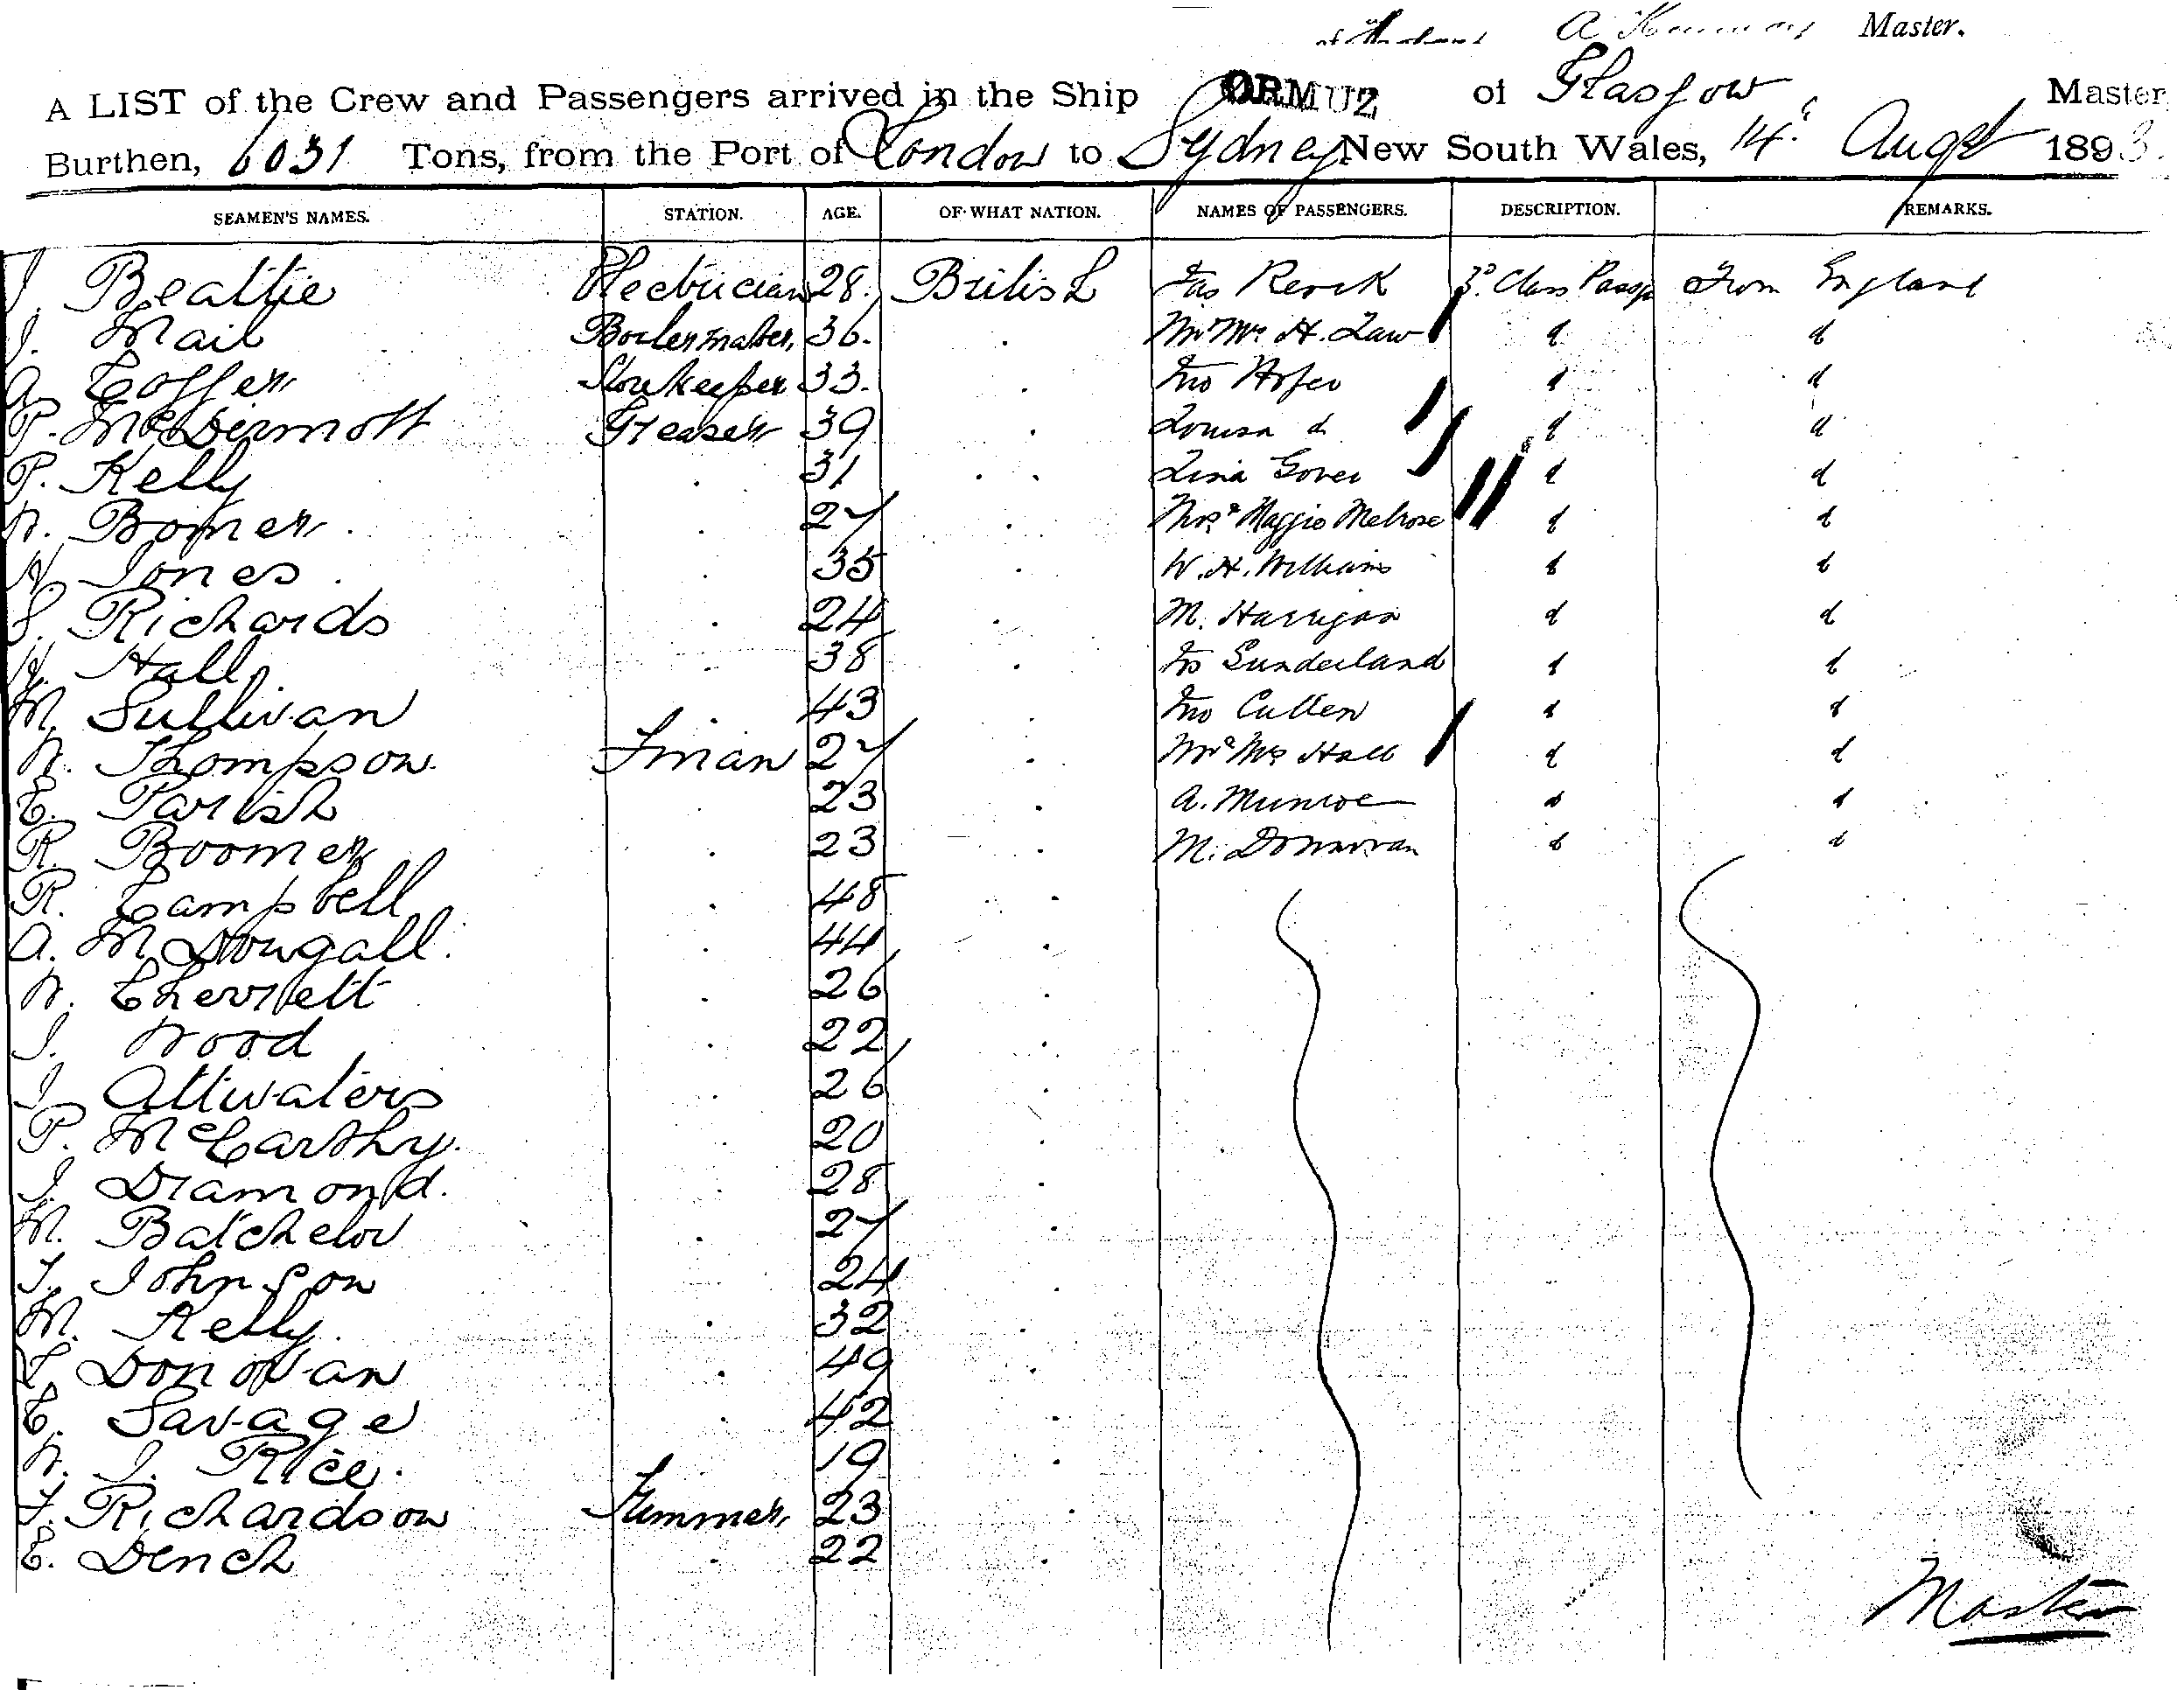 Master.
A LIST of the Crew and Passengers arrived in the Ship ORMUZ of Glasgow Master
Burthen, 6031 Tons, from the Port of London to Sydney New South Wales, 14 Augst 1893.
SEAMEN'S NAMES. STATION. AGE. OF WHAT NATION. NAMES OF PASSENGERS. DESCRIPTION. REMARKS.
J. Beattie Electrician 28. British Jas 3d. Class Passgr From England
J. Mail Boilermaker, 36. . Mr Mrs H. Law " "
A. Coffer Storekeeper 33. . Jno Hofer " "
P. McDermott Greaser 39 . Louisa do " "
P. Kelly . 31 . . Lina Gover " "
W. Bomer . . 27 . Mrs Maggie Melrose " "
H. Jones . . 35 . W. H. Williams " "
S. Richards . 24 . M. Harrigan " "
H. Hall . 38 . Jno Sunderland " "
M. Sullivan . 43 . Jno Cullen " "
W. Thompson. Fman 27 . Mr Mrs Hall " "
E. Parish . 23 . A. Munroe " "
R. Boomer . 23 . M. Donnovan " "
R. Campbell . 48 .
A. McDougall. . 44 .
W. Cherrett . 26 .
J. Wood . 22 .
J. Attwaters . 26 .
P. McCarthy. . 20 .
J. Diamond. . 28 .
M. Batchelor . 27 .
T. Johnson 24 .
M. Kelly. . 32 .
T. Donovan . 49 .
C. Savage . 42 .
W. J. Rice. 19 .
T. Richardson Trimmer, 23 .
E. Dench . 22 .
Master